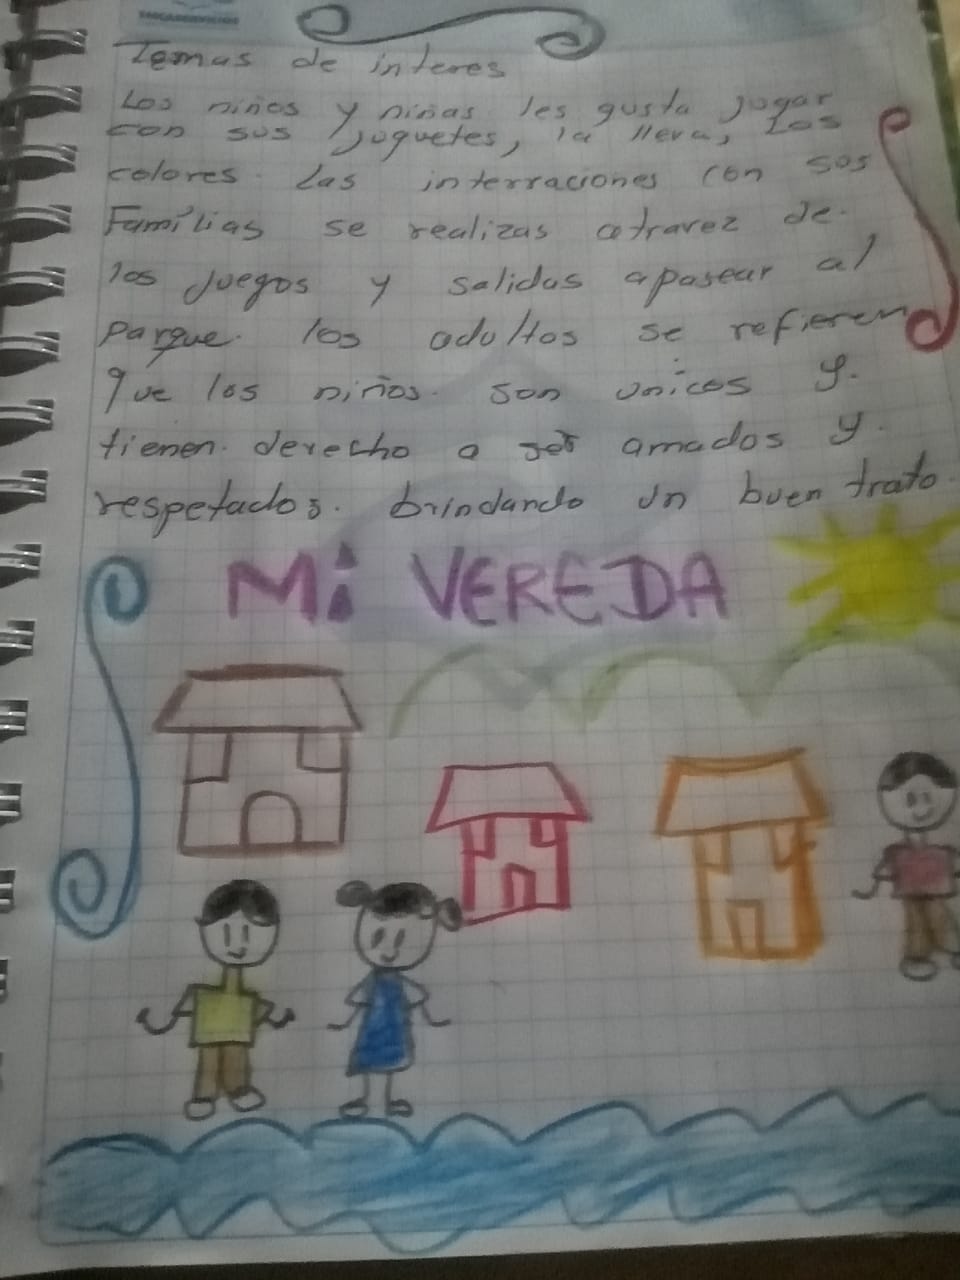 Temas de interes
Los niños y niñas les gusta jugar
con sus juguetes, la lleva, Los
colores. Las interraciones con sos
Famílias se realizas atravez de.
los Juegos y salidas apasear al
parque. los adultos se refieren
que los niños. son unicos y.
tienen. derecho a ser amados y.
respetados. brindando un buen trato.
Mi VEREDA